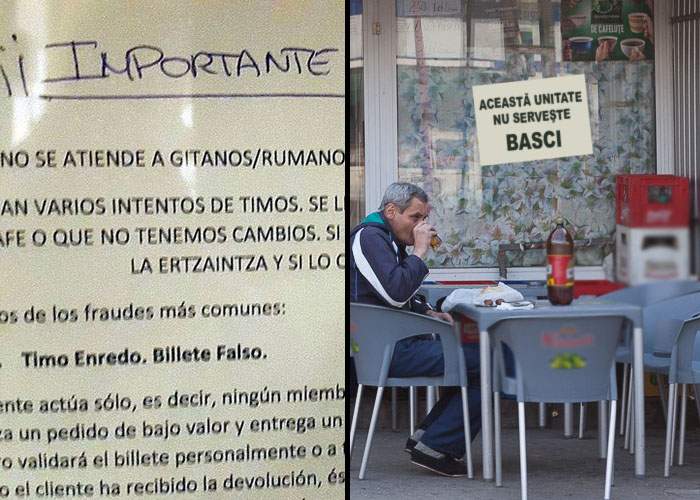 ¡¡ IMPORTANTE
NO SE ATIENDE A GITANOS/RUMANO
AN VARIOS INTENTOS DE TIMOS. SE L
AFE O QUE NO TENEMOS CAMBIOS. SI
LA ERTZAINTZA Y SI LO
os de los fraudes más comunes:
Timo Enredo. Billete Falso.
ente actúa sólo, es decir, ningún miemb
za un pedido de bajo valor y entrega un
ro validará el billete personalmente o a
o el cliente ha recibido la devolución, és
ACEASTĂ UNITATE
NU SERVEȘTE
BASCI
DE CAFELUȚE